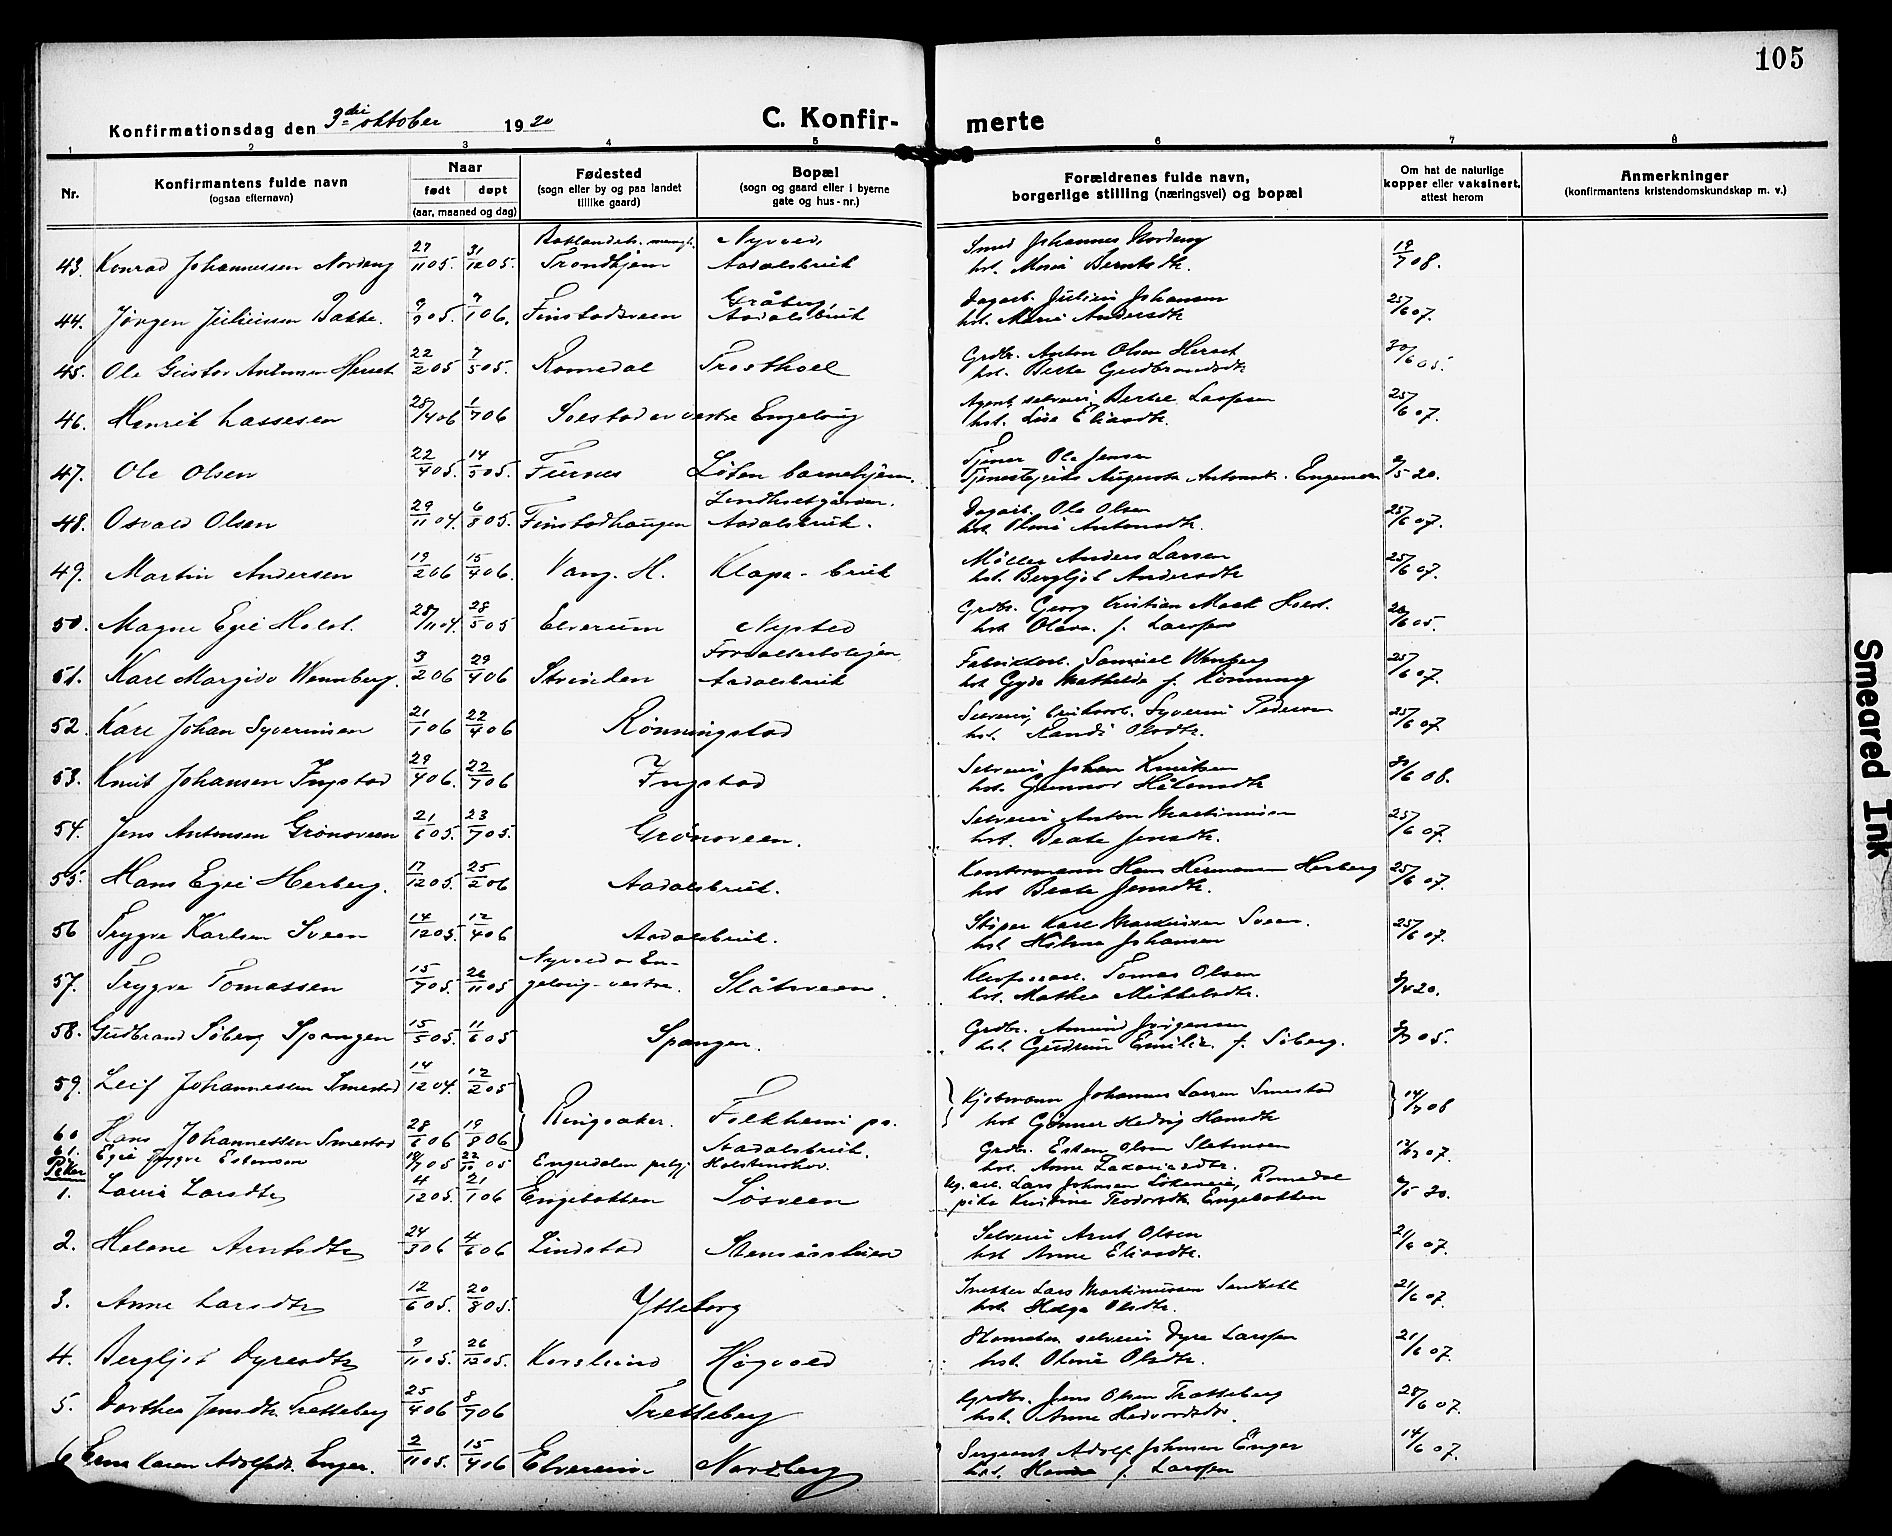 105
Konfirmationsdag den 3die oktober 1920
C. Konfir- merte
1 2 3 4 5 6 7 8
Nr.
Konfirmantens fulde navn
(ogsaa efternavn)
Naar
født døpt
(aar, maaned og dag)
Fødested
(sogn eller by og paa landet
tillike gaard)
Bopæl
(sogn og gaard eller i byerne
gate og hus-nr.)
Forældrenes fulde navn,
borgerlige stilling (næringsvei) og bopæl
Om hat de naturlige
kopper eller vaksinert,
attest herom
Anmerkninger
(konfirmantens kristendomskundskap m. v.)
43. Konrad Johannessen Nordeng 27/11 05. 31/12 05. Trondhjem Nyvold, Aadalsbruk Smed Johannes Nordeng hst. Marie Berntsdtr. 19/7 08.
44. Jørgen Juliussen Bakke. 9/9 05. 7/1 06. Finstadsveen Gråberg, Aadalsbruk Dagarb. Julius Johansen hst. Marie Andersdtr 25/6 07.
45. Ole Gustav Antonsen Herset 22/2 05 7/5 05. Romedal Trosthoel Grdbr. Anton Olsen Herset hst. Berte Gudbrandsdtr 30/6 05.
46. Henrik Lassesen 28/4 06 1/7 06 Solstad av vestre Engelaug Agent, selveier Bertel Lassesen hst. Lise Eliasdtr. 25/6 07.
47. Ole Olsen 22/4 05. 14/5 05. Furnes Løten barnehjem. Tjener Ole Jensen Tjenestepike Augusta Antonsdtr. Engemoen 9/5 20.
48. Osvald Olsen 29/11 04. 6/8 05. Finstadhaugen Lundhsetgården. Aadalsbruk. Dagarb. Ole Olsen hst. Oline Antonsdtr. 25/6 07.
49. Martin Andersen 19/2 06 15/4 06. Vang. H. Klapa-bruk Møller Anders Larsen hst. Bergljot Andersdtr 25/6 07.
50. Magne Egil Holst. 28/11 04. 28/5 05 Elverum Nysted Grdbr. Georg Kristian Mack Holst. hst. Olava f. Larssen 20/6 05.
51. Karl Margido Wennberg. 3/2 06 29/4 06 Strinden Forvalterboligen, Aadalsbruk Fabrikbest. Samuel Wennberg hst Gyda Mathilde f. Rønning 25/6 07.
52. Karl Johan Syverinsen 21/1 06 22/4 06 Rønningstad Selveier, bruksarb. Syverin Pedersen hst. Randi Olsdtr. 25/6 07.
53. Knut Johansen Ingstad 29/4 06. 22/7 06 Ingstad Selveier Johan Knutsen hst. Gunnor Håkensdtr 8/6 08.
54. Jens Antonsen Grønoveen 21/6 05. 23/7 05. Grønoveen. Selveier Anton Martinusen hst. Beate Jensdtr. 25/6 07.
55. Hans Egil Herberg. 17/12 05. 25/2 06 Aadalsbruk. Kontormann Hans Hermansen Herberg hst Beate Jensdtr. 25/6 07.
56 Trygve Karlsen Sveen 14/12 05. 12/4 06 Aadalsbruk. Støper Karl Markussen Sveen. hst. Hilma Johansen 25/6 07.
57. Trygve Tomassen 15/7 05. 26/11 05 Nyvold av Engelaug-vestre. Slåtsveen. Tomas Olsen hst. Mathea Mikkelsdtr. 9/4 20.
58. Gudbrand Siberg Spangen 15/5 05. 11/6 05 Spangen. Grdbr. Amund Jørgensen hst. Gudrun Emilie f. Siberg. 05.
59. Leif Johannessen Smestad 14/12 04. 12/2 05
60 Hans Johannessen Smestad 28/6 06 19/8 06 Ringsaker. Folkheim pr. Aadalsbruk. Kjøbmann Johannes Larsen Smestad hst Gunner Hedvig Hansdtr 14/7 08
61. Egil Trygve Estensen 05 22/10 05 Engerdalen Holstenshov. Grdbr. Esten Olsen Sletmoen hst. Anne Zakariasdtr. 07.
Piker
1. Laura Larsdtr 4/12 05. 21/1 06 Engebakken Søsveen Lars Johnsen Løkeneie, Romedal pike Kristine Teodorsdtr Engebakken 9/5 20.
2. Helene Arntsdtr 24/3 06 4/6 06 Lindstad Stensåsstuen Selveier Arnt Olsen hst Anne Eliasdtr. 21/6 07.
3. Anne Larsdtr 12/6 05. 20/8 05. Ytteborg Snekker Lars Martinussen Sandbakk hst. Helga Olsdtr. 21/6 07.
4. Bergljot Dyresdtr 9/11 05. 26/12 05. Korslund Høgvold Skomaker, selveier Dyre Larssen hst. Oline Olsdtr. 21/6 07.
5. Dorthea Jensdtr. Tretteberg 25/4 06 8/7 06 Tretteberg Grdbr. Jens Olsen Tretteberg hst. Anne Hedvardsdtr. 28/6 07.
6 Erna Karen Adolfsdtr. Enger. 2/11 05. 15/4 06 Elverum. Nordberg Sergeant Adolf Johnsen Enger hst. Hanna f. Larssen 14/6 07.
Smeared Ink